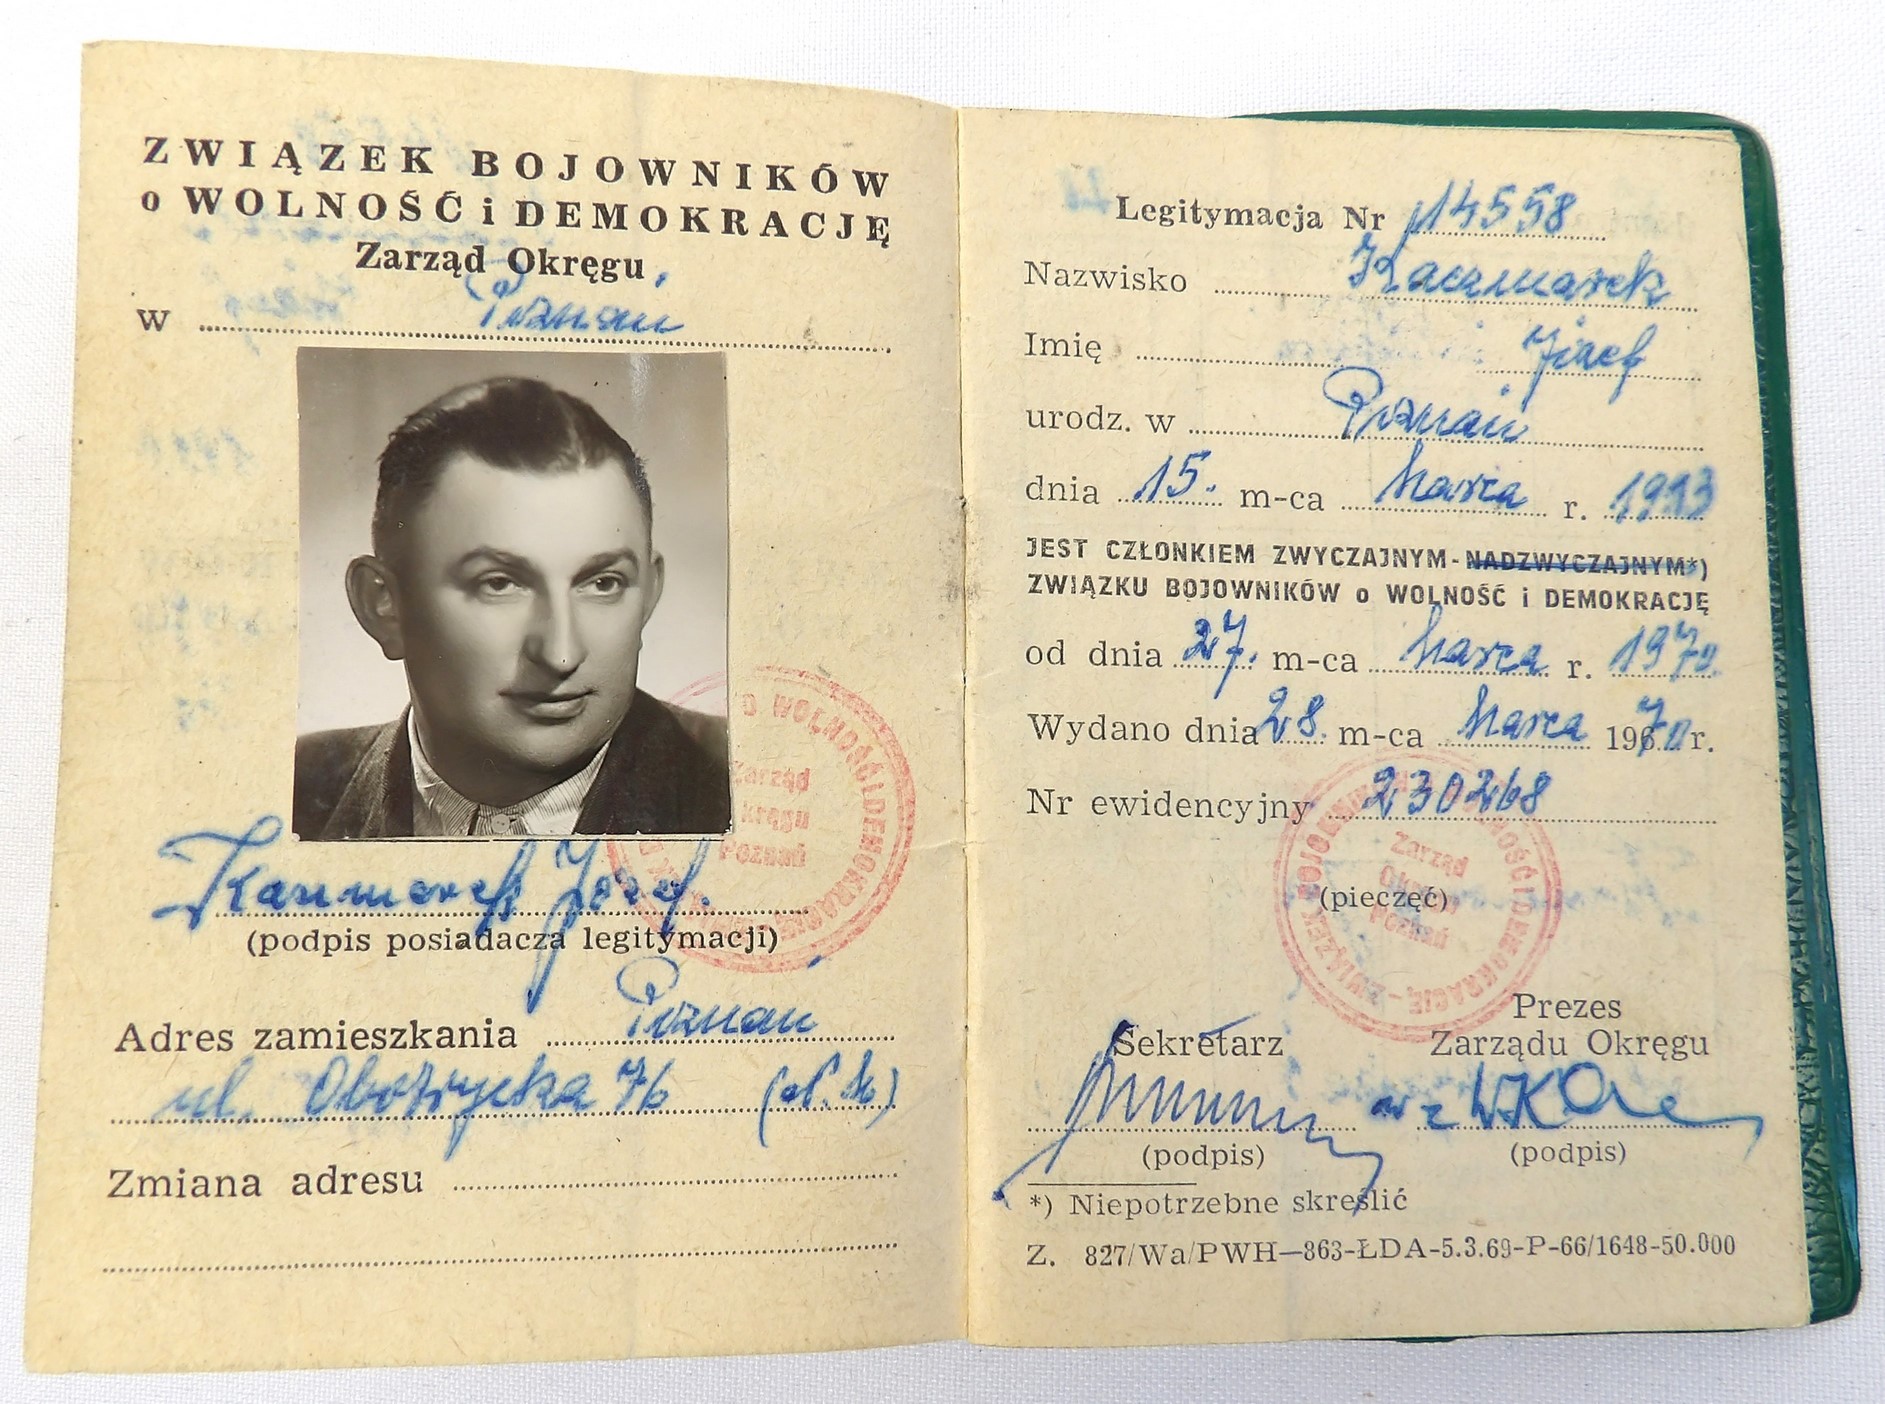 ZWIĄZEK BOJOWNIKÓW
o WOLNOŚĆ i DEMOKRACJĘ
Zarząd Okręgu
w Poznaniu
Kaczmarek Józef.
(podpis posiadacza legitymacji)
Adres zamieszkania Poznań
ul. Obotrycka 76
Zmiana adresu
O WOLNOŚĆ I DEMOKRACJĘ
Zarząd
Okręgu
Poznań
Legitymacja Nr 14558
Nazwisko Kaczmarek
Imię Józef
urodz. w Poznań
dnia 15. m-ca Marca r.
JEST CZŁONKIEM ZWYCZAJNYM-NADZWYCZAJNYM*)
ZWIĄZKU BOJOWNIKÓW o WOLNOŚĆ i DEMOKRACJĘ
od dnia 27. m-ca Marca r. 1970
Wydano dnia 28. m-ca Marca 1970 r.
Nr ewidencyjny 230268
(pieczęć)
ZWIĄZEK BOJOWNIKÓW O WOLNOŚĆ I DEMOKRACJĘ
Zarząd
Okręgu
Poznań
Sekretarz
Prezes
Zarządu Okręgu
(podpis) (podpis)
*) Niepotrzebne skreślić
Z. 827/Wa/PWH—863-ŁDA-5.3.69-P-66/1648-50.000